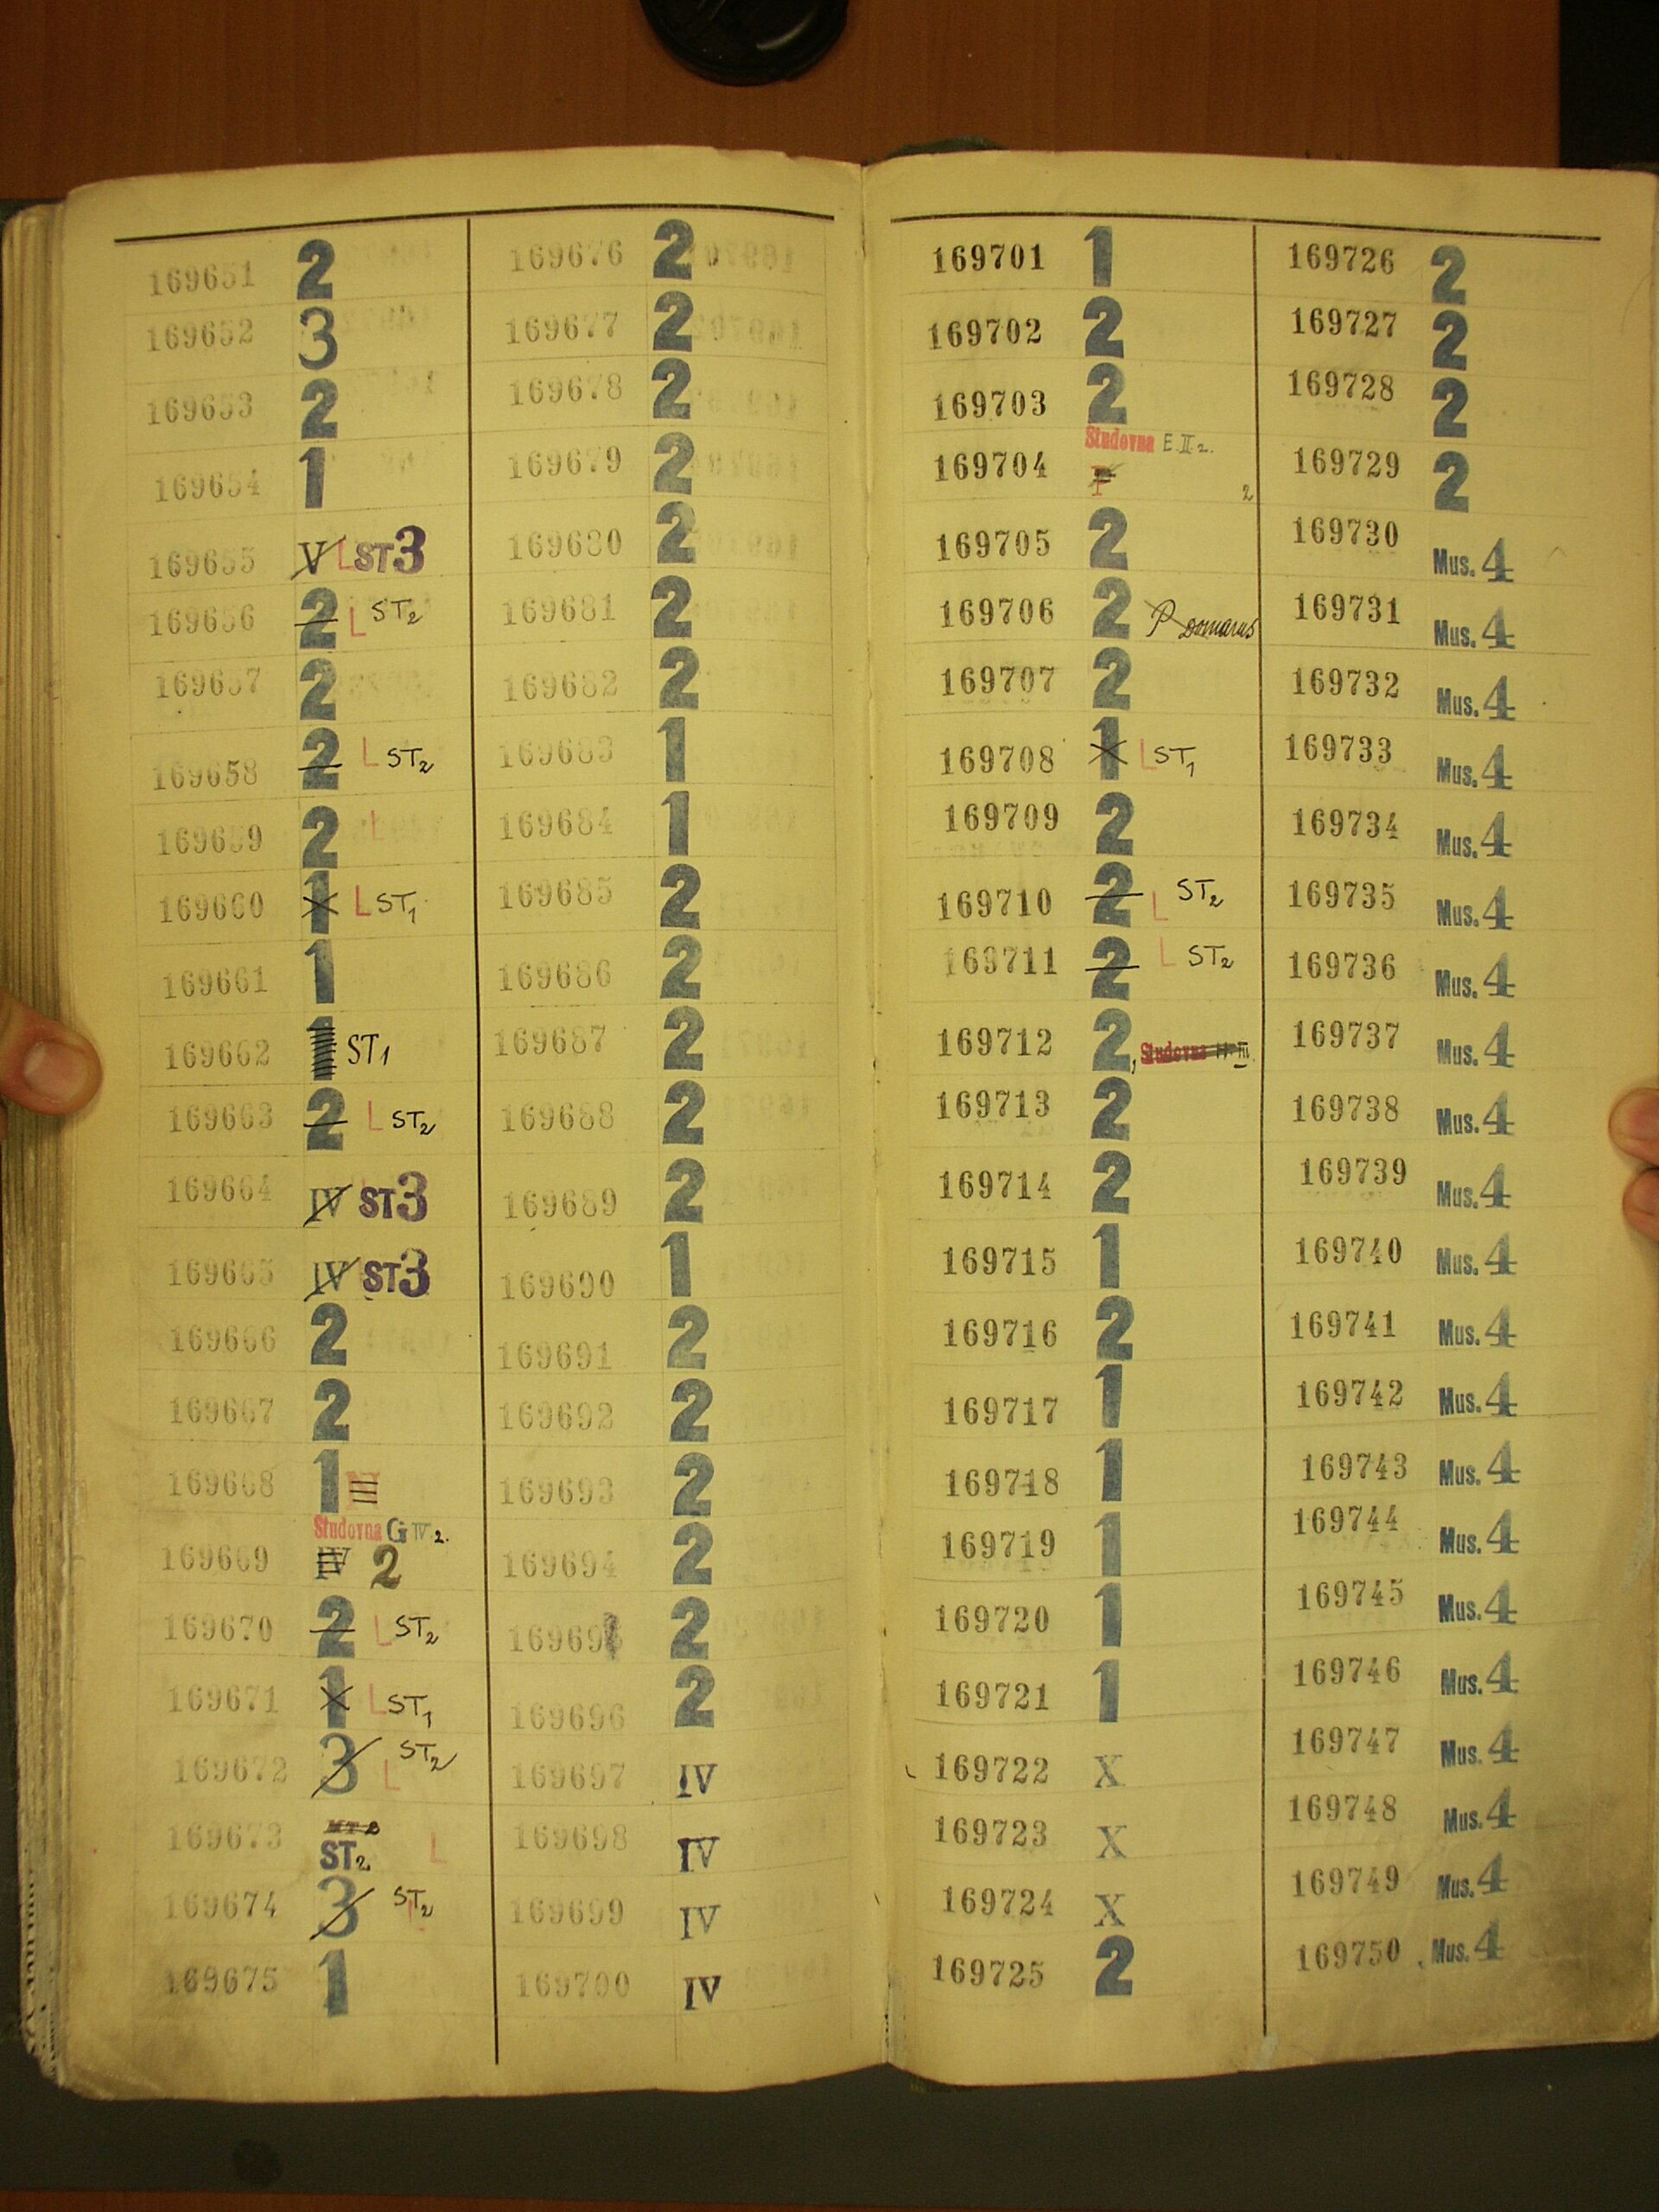 169651 2
169652 3
169653 2
169654 1
169655 V L ST3
169656 2 L ST2
169657 2
169658 2 L ST2
169659 2 L
169660 1 L ST1
169661 1
169662 1 ST1
169663 2 L ST2
169664 IV ST3
169665 IV ST3
169666 2
169667 2
169668 1
Studovna G IV.2.
169669 IV 2
169670 2 L ST2
169671 1 L ST1
169672 3 L ST2
169673 ST2 L
169674 3 ST2
169675 1
169676 2
169677 2
169678 2
169679 2
169680 2
169681 2
169682 2
169683 1
169684 1
169685 2
169686 2
169687 2
169688 2
169689 2
169690 1
169691 2
169692 2
169693 2
169694 2
2
169696 2
169697 IV
169698 IV
169699 IV
169700 IV
169701 1
169702 2
169703 2
Studovna E.II.2.
169704 2
169705 2
169706 2 P Domarus
169707 2
169708 1 L ST1
169709 2
169710 2 L ST2
169711 2 L ST2
169712 2, Studovna III
169713 2
169714 2
169715 1
169716 2
169717 1
169718 1
169719 1
169720 1
169721 1
169722 X
169723 X
169724 X
169725 2
169726 2
169727 2
169728 2
169729 2
169730 Mus. 4
169731 Mus. 4
169732 Mus. 4
169733 Mus. 4
169734 Mus. 4
169735 Mus. 4
169736 Mus. 4
169737 Mus. 4
169738 Mus. 4
169739 Mus. 4
169740 Mus. 4
169741 Mus. 4
169742 Mus. 4
169743 Mus. 4
169744 Mus. 4
169745 Mus. 4
169746 Mus. 4
169747 Mus. 4
169748 Mus. 4
169749 Mus. 4
169750 Mus. 4